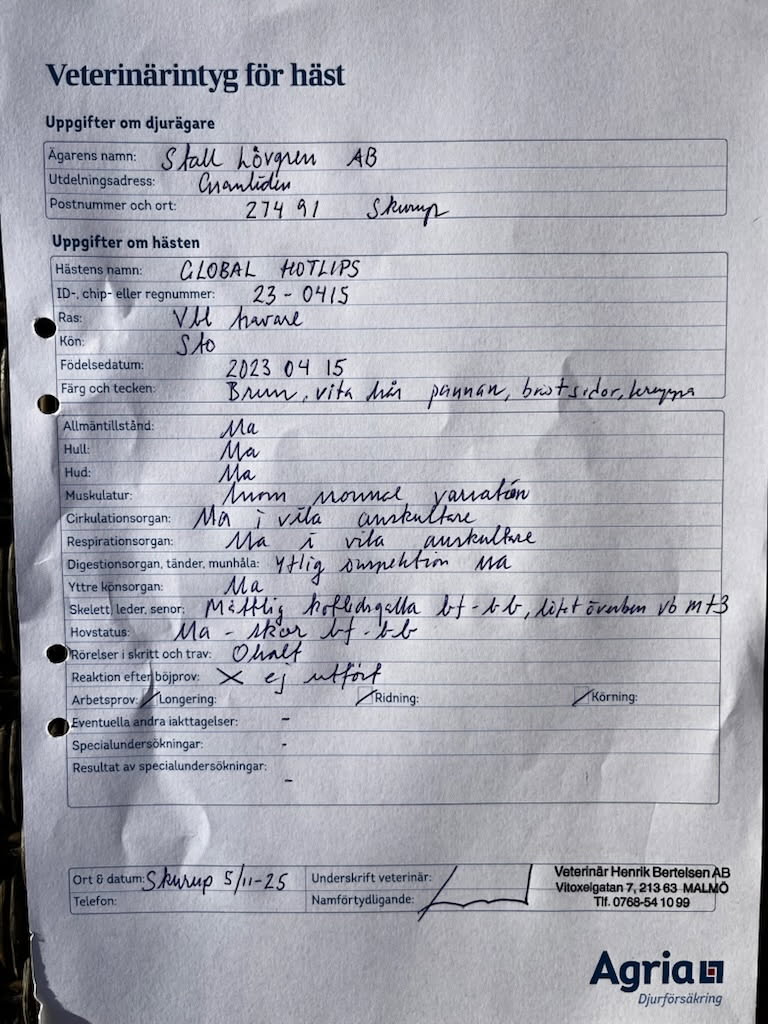 Veterinärintyg för häst
Uppgifter om djurägare
Ägarens namn: Stall Lövgren AB
Utdelningsadress: Granliden
Postnummer och ort: 274 91 Skurup
Uppgifter om hästen
Hästens namn: GLOBAL HOTLIPS
ID-, chip- eller regnummer: 23-0415
Ras: Vbl travare
Kön: Sto
Födelsedatum: 2023 04 15
Färg och tecken: Brun, vita hår pannan, bröstsidor, kruppa
Allmäntillstånd: Ua
Hull: Ua
Hud: Ua
Muskulatur: Inom normal variation
Cirkulationsorgan: Ua i vila auskultare
Respirationsorgan: Ua i vila auskultare
Digestionsorgan, tänder, munhåla: Ytlig inspektion ua
Yttre könsorgan: Ua
Skelett, leder, senor: Måttlig kotledsgalla bf-bb, litet överben vb mt3
Hovstatus: Ua - skor bf-bb
Rörelser i skritt och trav: Ohalt
Reaktion efter böjprov: X ej utfört
Arbetsprov: / Longering: / Ridning: / Körning:
Eventuella andra iakttagelser: -
Specialundersökningar: -
Resultat av specialundersökningar: -
Ort & datum: Skurup 5/11-25 Underskrift veterinär:
Telefon: Namförtydligande:
Veterinär Henrik Bertelsen AB
Vitoxelgatan 7, 213 63 MALMÖ
Tlf. 0768-54 10 99
Agria
Djurförsäkring